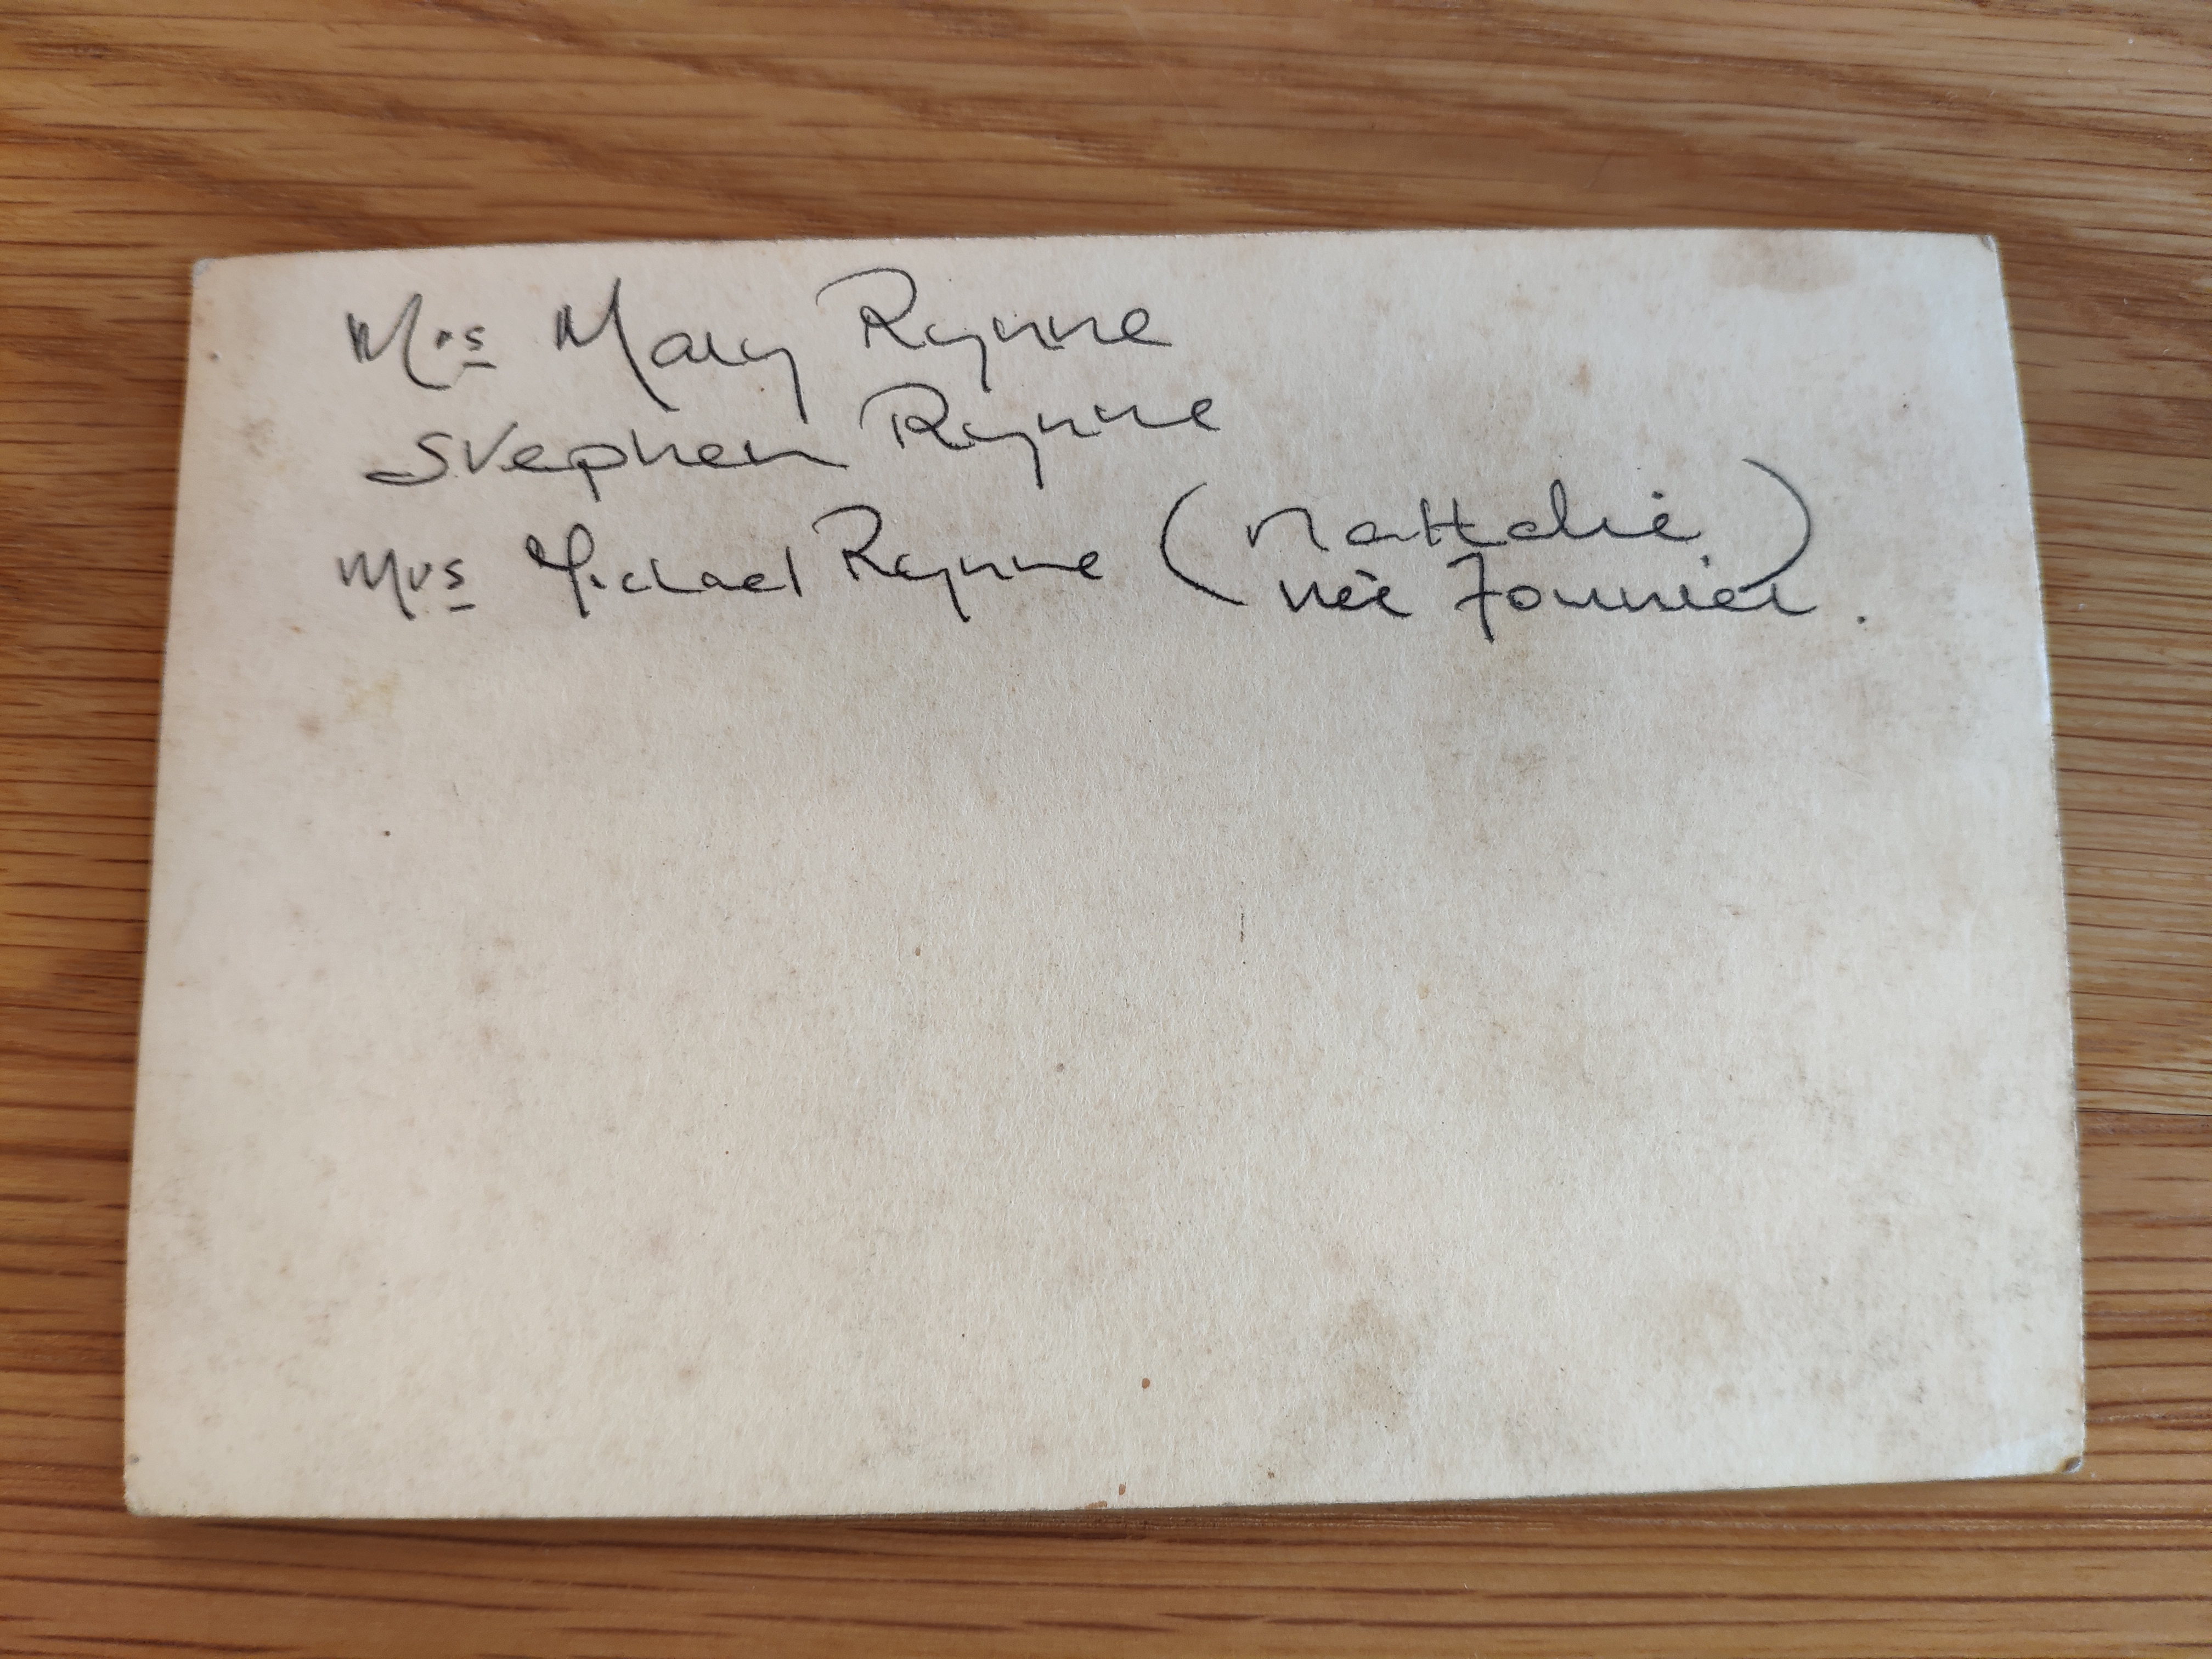 Mrs Mary Rynne
Stephen Rynne
Mrs Michael Rynne (Nathalie
née Fournier).